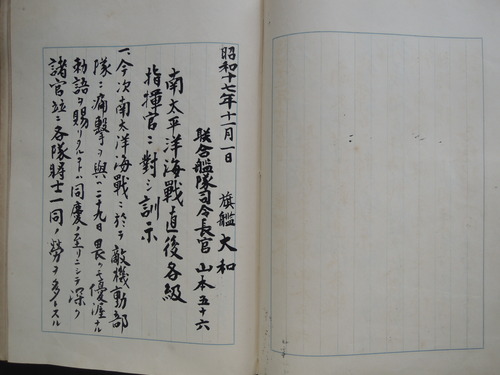 昭和十七年十一月一日
旗艦 大和
聯合艦隊司令長官 山本五十六
南太平洋海戰直後各級
指揮官ニ對シ訓示
一、今次南太洋海戰ニ於テ敵機動部
隊ニ痛擊ヲ與ヘ二十九日畏クモ優渥ナル
勅語ヲ賜リタルコトハ同慶ノ至リニシテ深ク
諸官並ニ各隊將士一同ノ勞ヲ多トスル